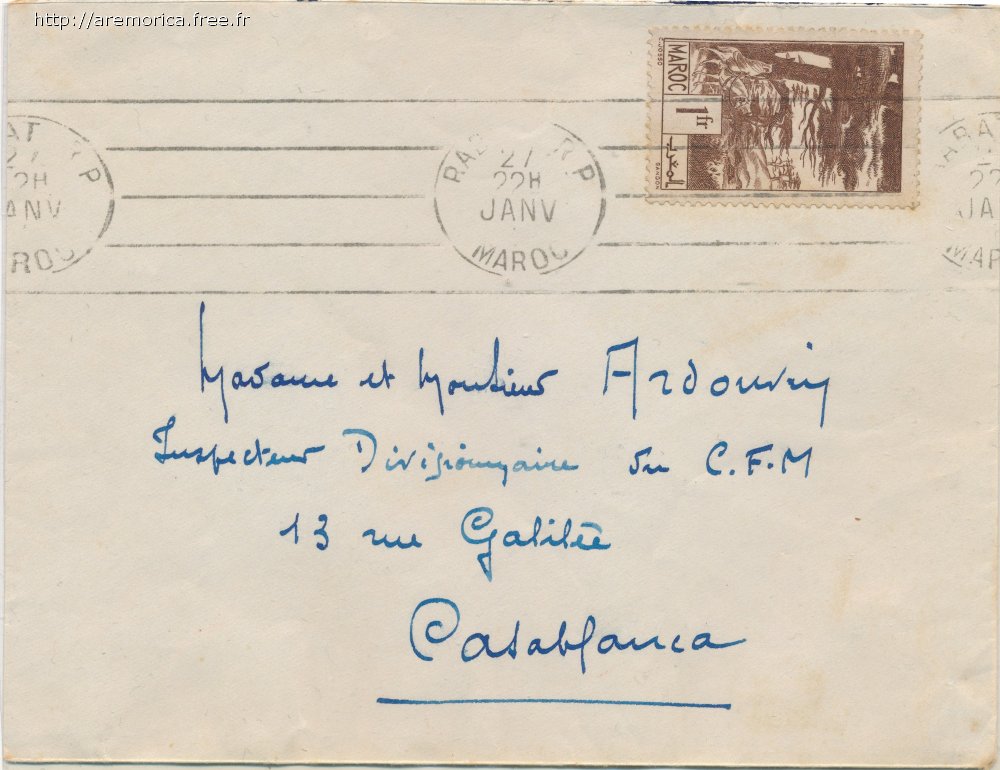 http://aremorica.free.fr
MAROC
1 fr
المغرب
RABAT R.P
27
22H
JANV
MAROC
Madame et Monsieur Ardouvin
Inspecteur Divisionnaire du C.F.M
13 rue Galilée
Casablanca